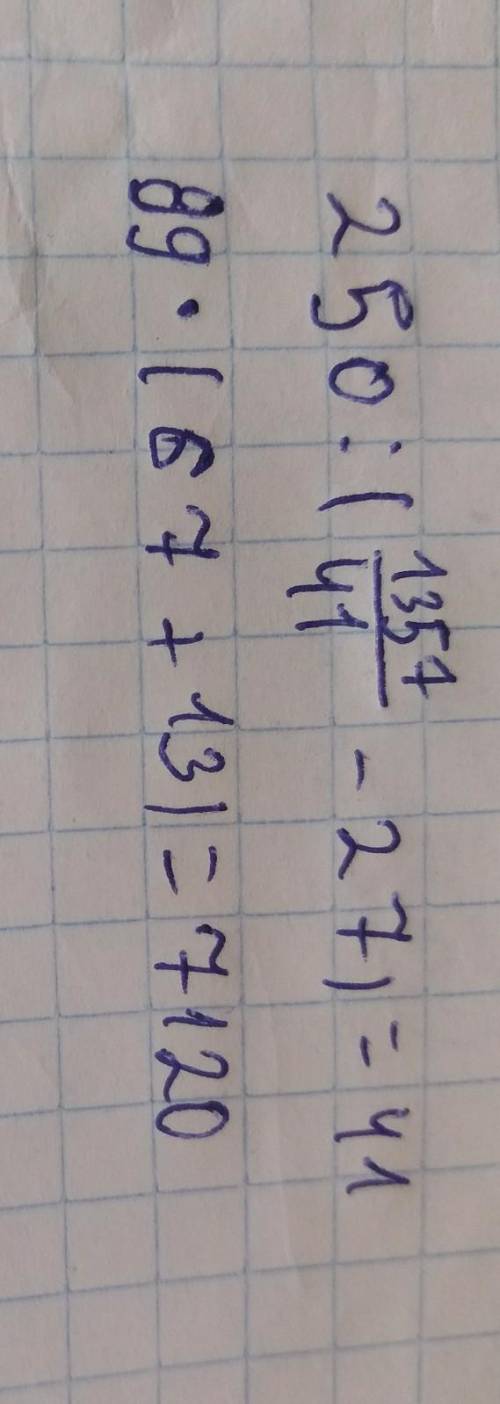 250 : ( 1357/41 - 27) = 41
89 · ( 67 + 13) = 7120